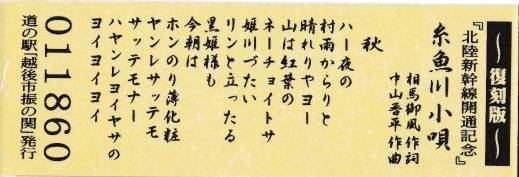 ～復刻版～
『北陸新幹線開通記念』
糸魚川小唄
相馬御風 作詞
中山晋平 作曲
秋
ハー夜の
村雨からりと
晴れりやヨー
山は紅葉の
ネーチョイトサ
姫川づたい
リンと立ったる
黒姫様も
今朝は
ホンのり薄化粧
ヤンレサッテモ
サッテモナー
ハヤンレヨイヤサの
ヨイヨイヨイ
011860
道の駅「越後市振の関」発行